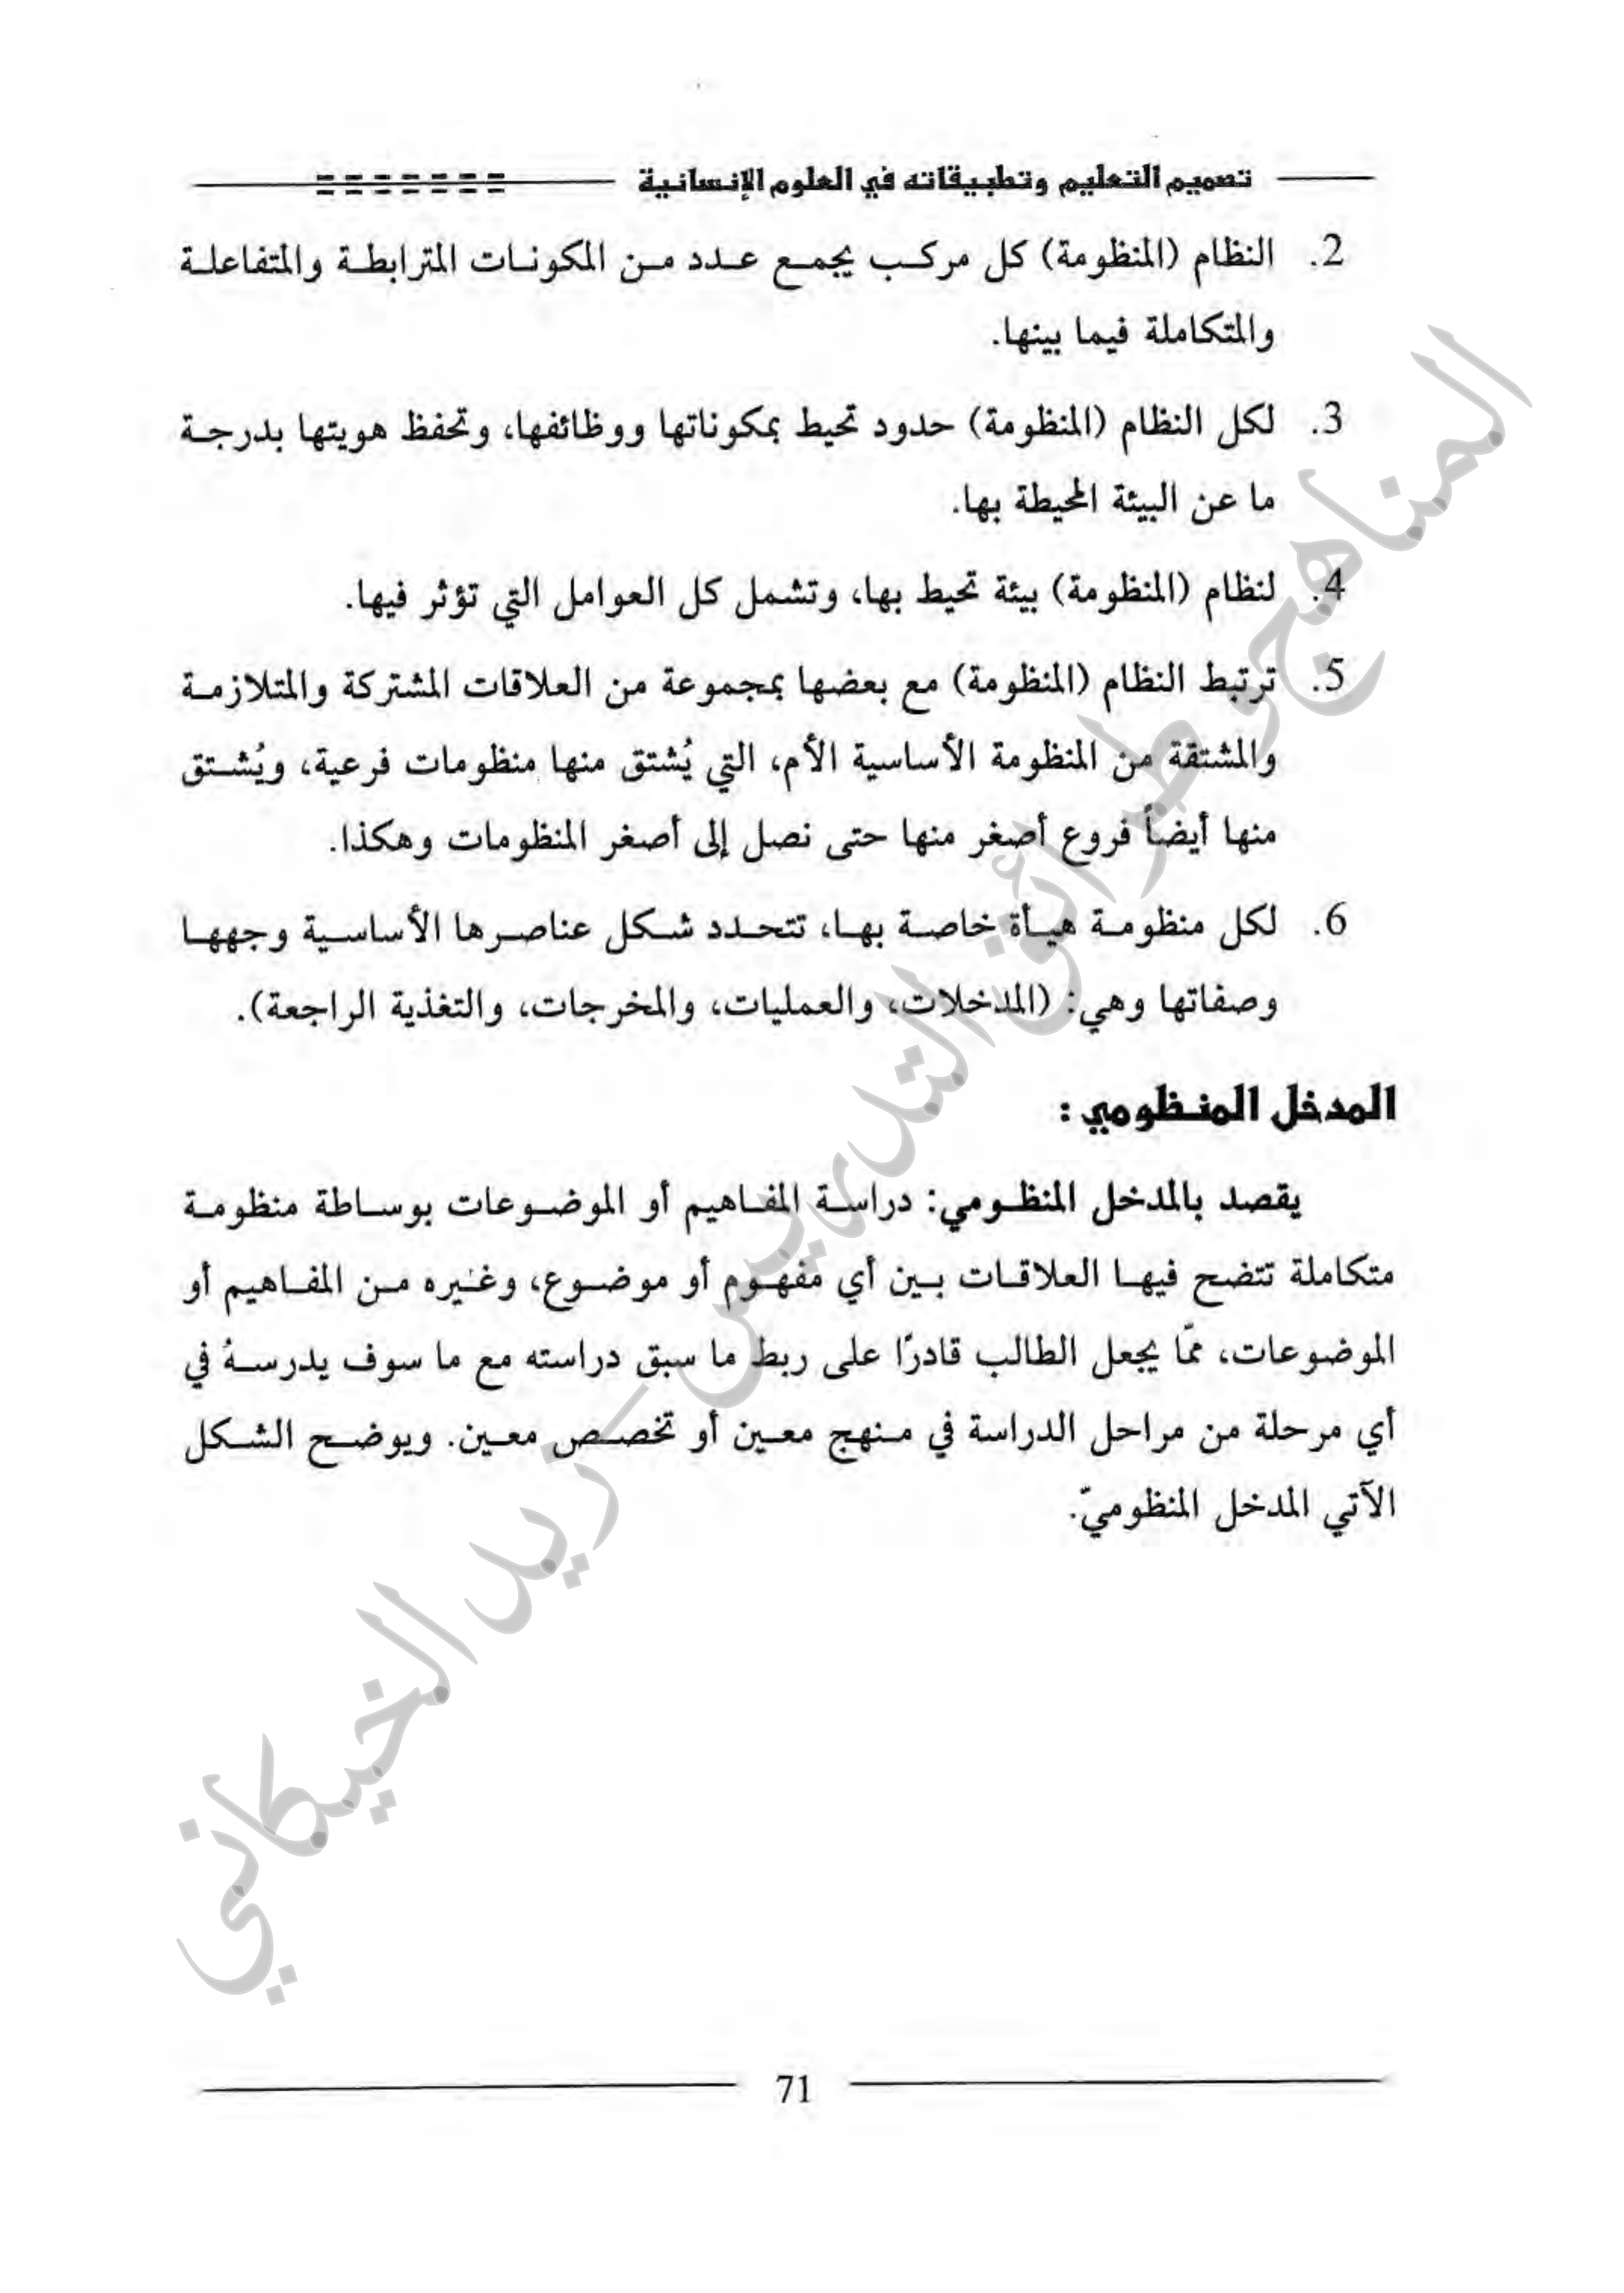 تصميم التعليم وتطبيقاته في العلوم الإنسانية
2. النظام (المنظومة) كل مركب يجمع عدد من المكونات المترابطة والمتفاعلة
والمتكاملة فيما بينها.
3. لكل النظام (المنظومة) حدود تحيط بمكوناتها ووظائفها، وتحفظ هويتها بدرجة
ما عن البيئة المحيطة بها.
4. لنظام (المنظومة) بيئة تحيط بها، وتشمل كل العوامل التي تؤثر فيها.
5. ترتبط النظام (المنظومة) مع بعضها بمجموعة من العلاقات المشتركة والمتلازمة
والمشتقة من المنظومة الأساسية الأم، التي يُشتق منها منظومات فرعية، ويُشتق
منها أيضاً فروع أصغر منها حتى نصل إلى أصغر المنظومات وهكذا.
6. لكل منظومة هيأة خاصة بها، تتحدد شكل عناصرها الأساسية وجهها
وصفاتها وهي: (المدخلات، والعمليات، والمخرجات، والتغذية الراجعة).
المدخل المنظومي:
يقصد بالمدخل المنظومي: دراسة المفاهيم أو الموضوعات بوساطة منظومة
متكاملة تتضح فيها العلاقات بين أي مفهوم أو موضوع، وغيره من المفاهيم أو
الموضوعات، ممّا يجعل الطالب قادرًا على ربط ما سبق دراسته مع ما سوف يدرسهُ في
أي مرحلة من مراحل الدراسة في منهج معين أو تخصص معين. ويوضح الشكل
الآتي المدخل المنظوميّ.
المناهج وطرائق التدريس - زيد الخيكاني
71